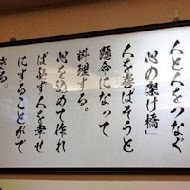 人と人をつなぐ
「心の架け橋」
人を喜ばそうと
懸命になって
料理する。
心を込めて作れ
ば必ず人を幸せ
にすることがで
きる。